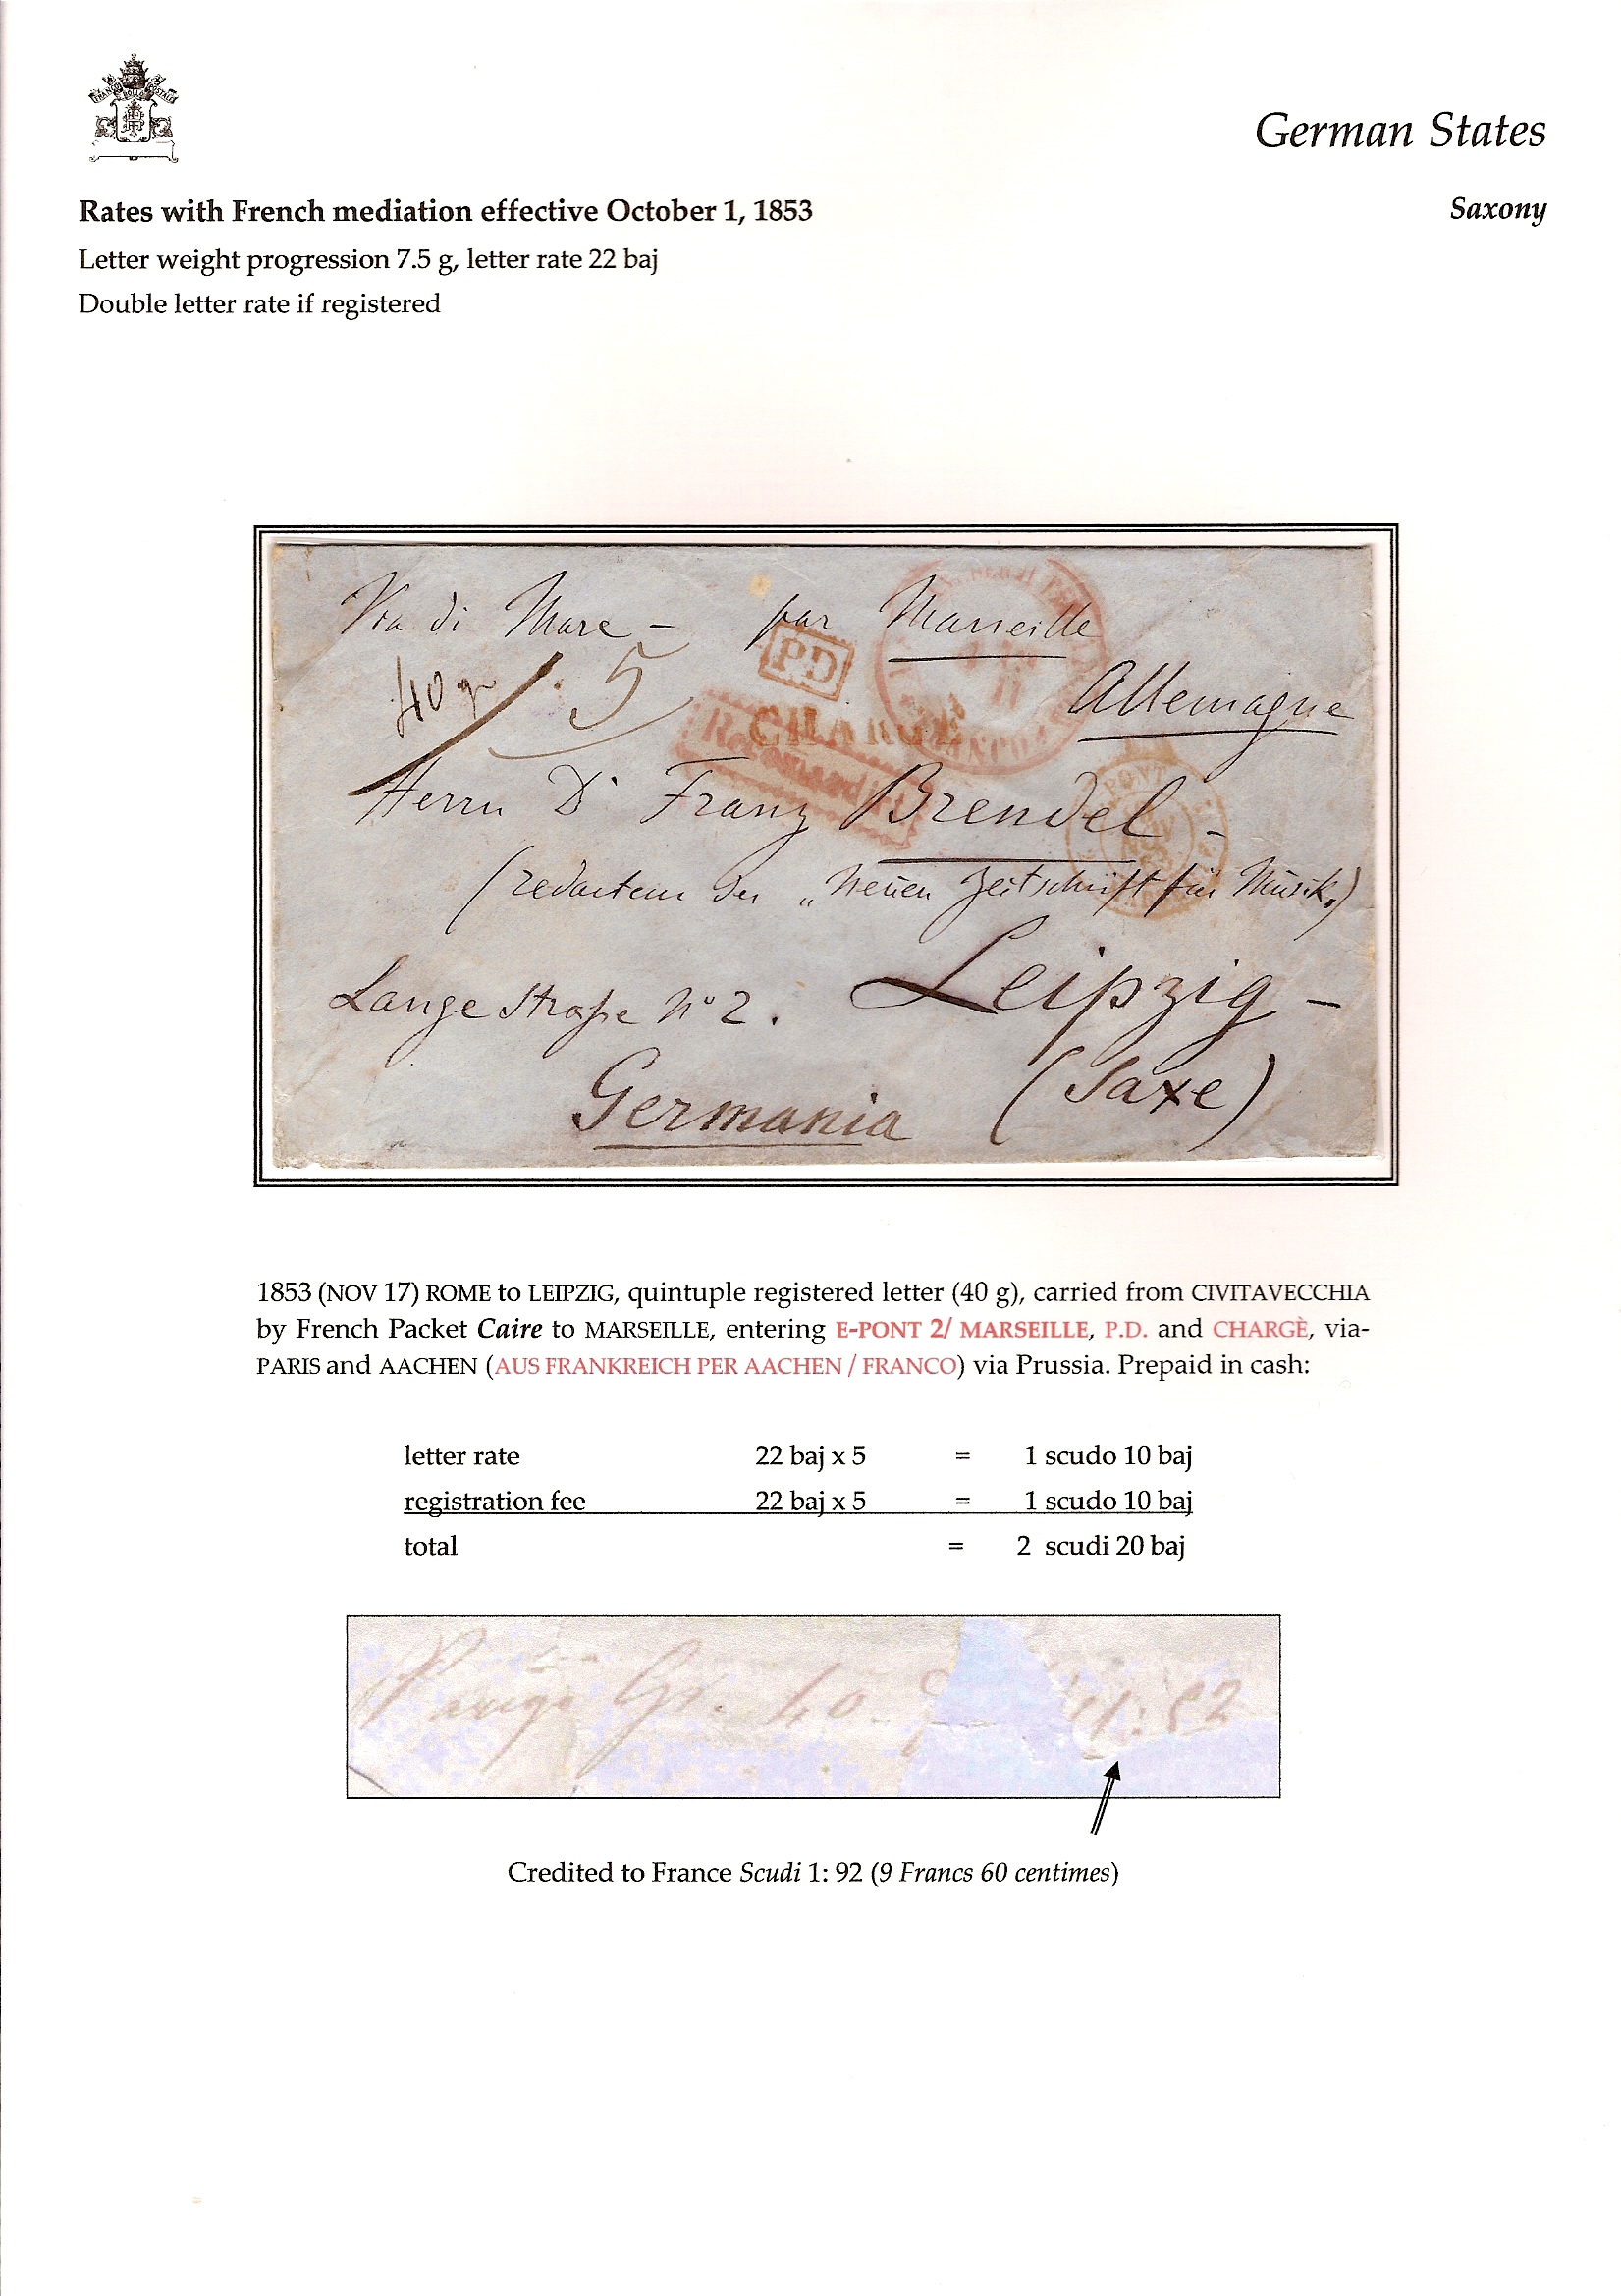 German States
Rates with French mediation effective October 1, 1853
Saxony
Letter weight progression 7.5 g, letter rate 22 baj
Double letter rate if registered
Via di Mare - par Marseille
PD
40 gr 5
Allemagne
CHARGÉ
Herrn Dr Franz Brendel -
(redacteur der „Neuen Zeitschrift für Musik.)
Lange Straße No 2. Leipzig -
Germania (Saxe)
1853 (NOV 17) ROME to LEIPZIG, quintuple registered letter (40 g), carried from CIVITAVECCHIA
by French Packet Caire to MARSEILLE, entering E-PONT 2/ MARSEILLE, P.D. and CHARGÈ, via-
PARIS and AACHEN (AUS FRANKREICH PER AACHEN / FRANCO) via Prussia. Prepaid in cash:
letter rate 22 baj x 5 = 1 scudo 10 baj
registration fee 22 baj x 5 = 1 scudo 10 baj
total = 2 scudi 20 baj
Gr. 40. 1:92
Credited to France Scudi 1: 92 (9 Francs 60 centimes)